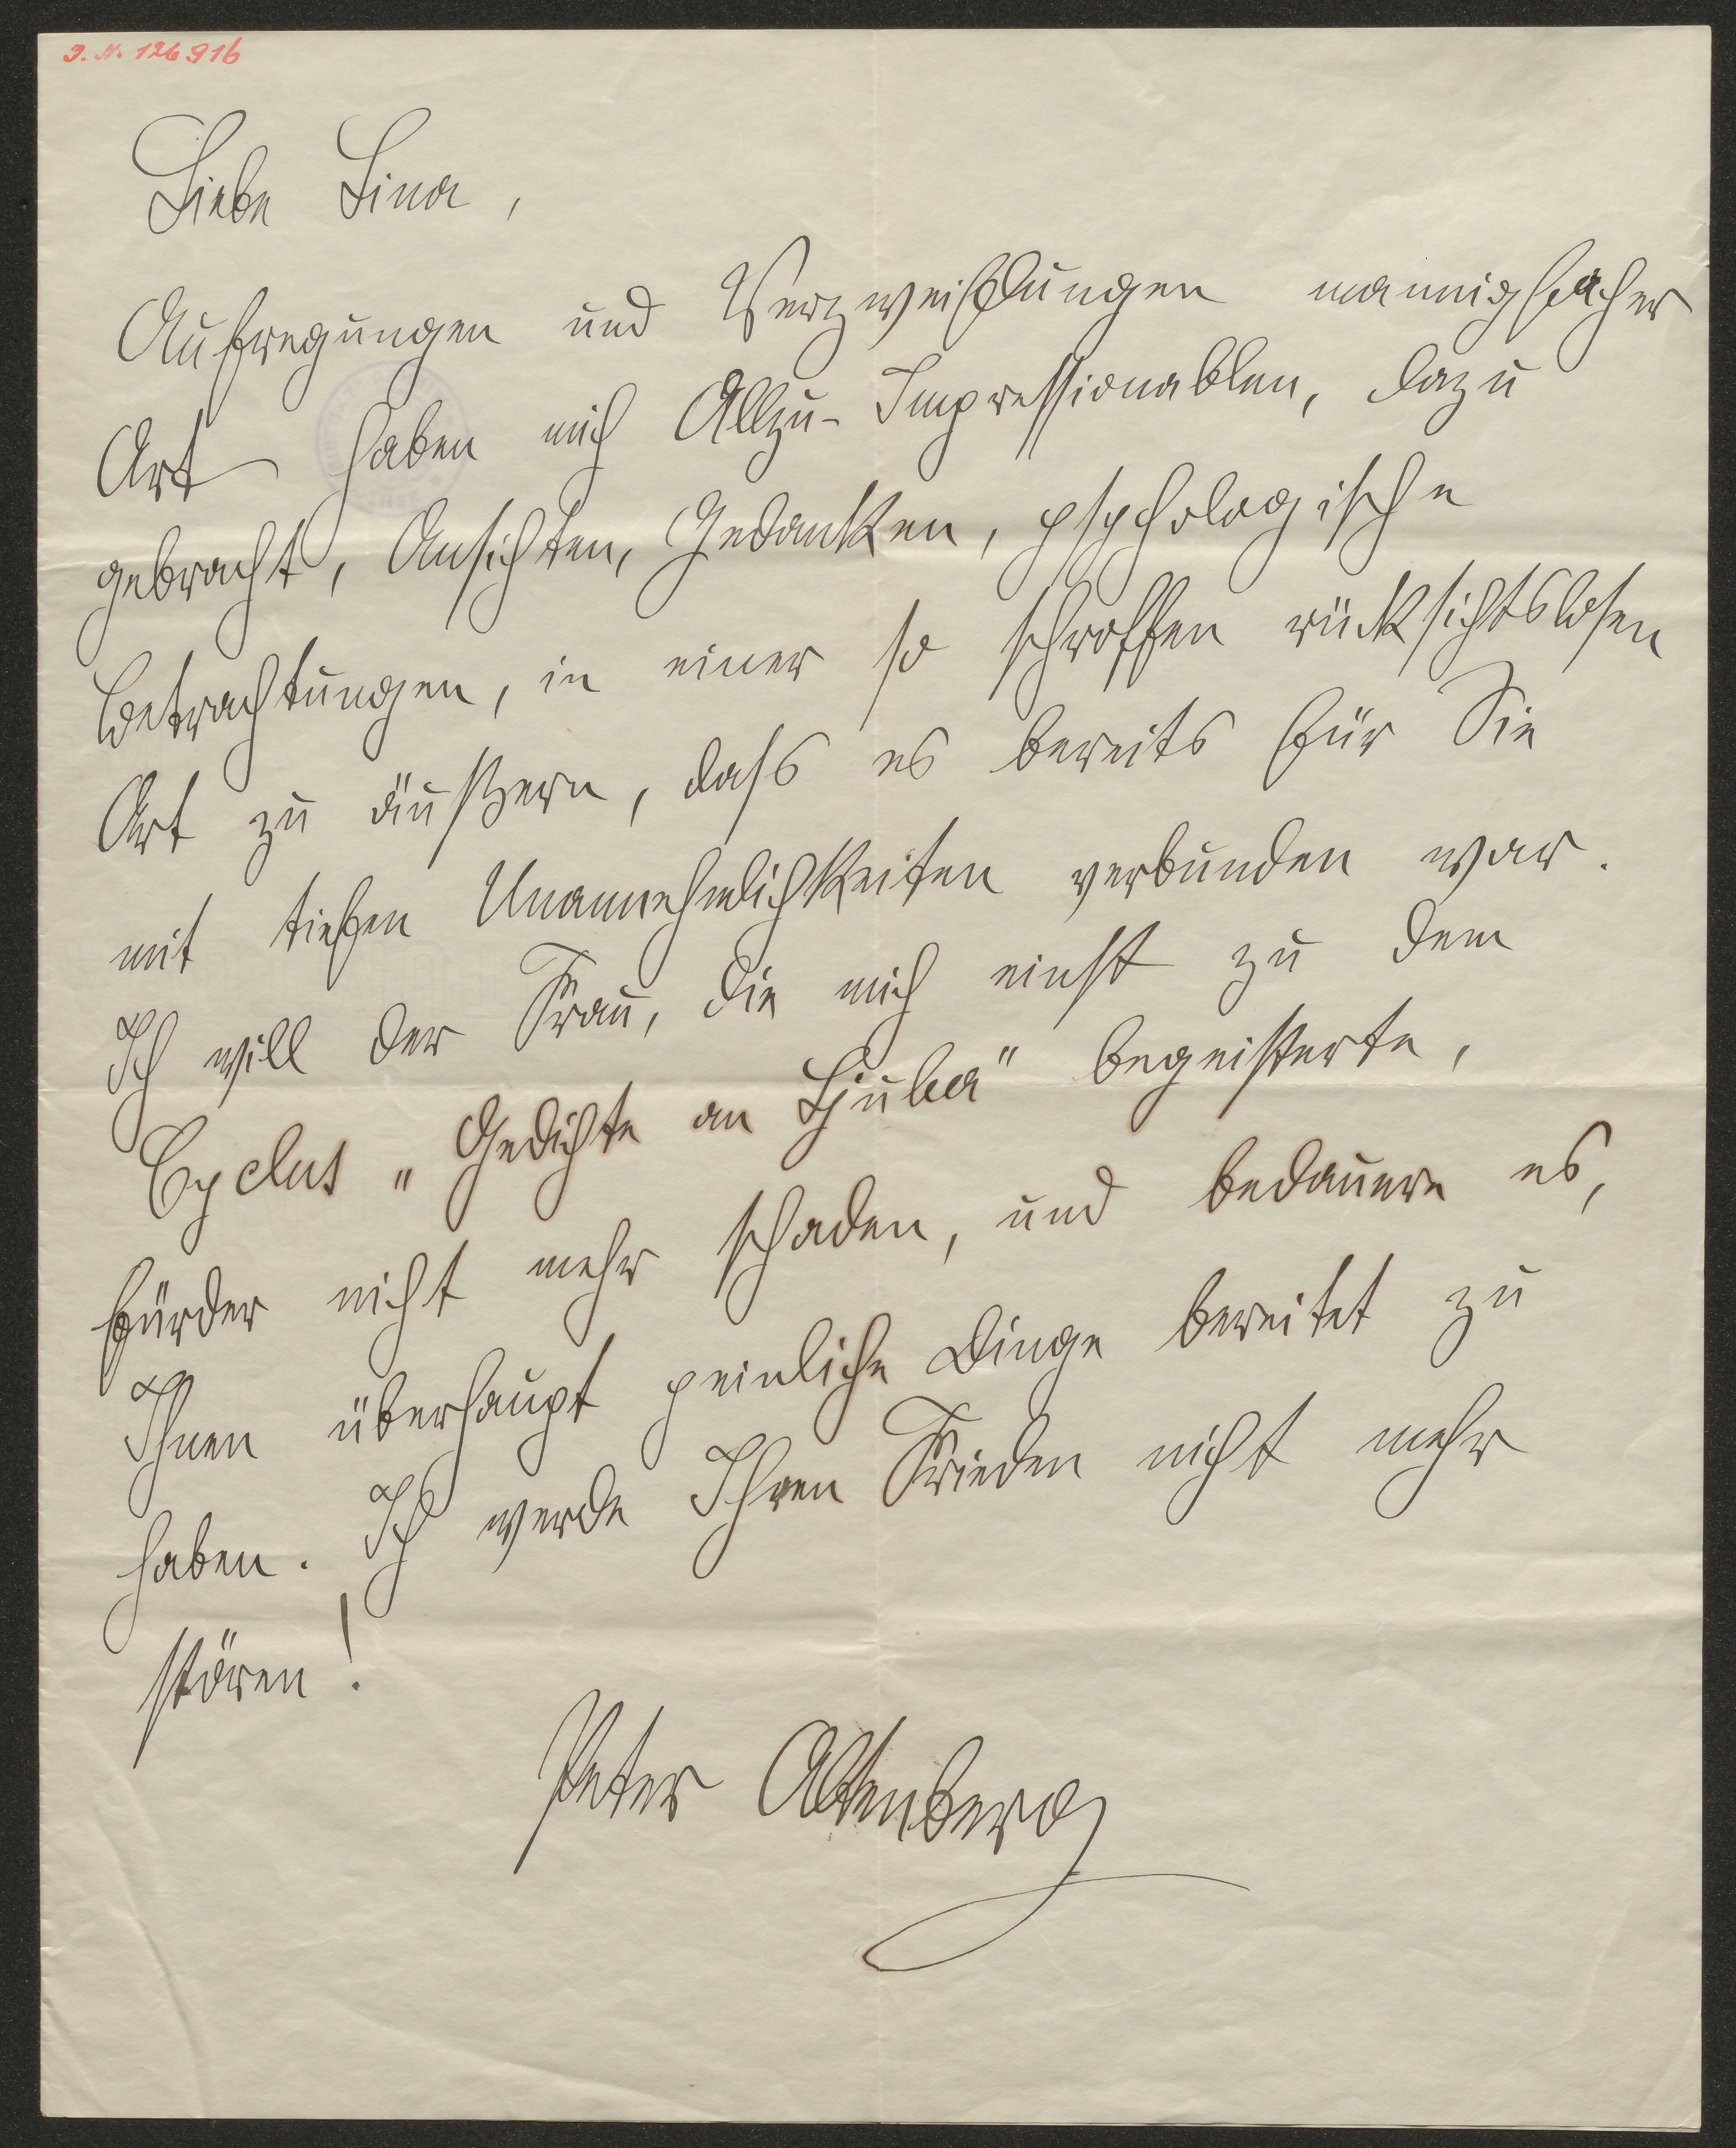 J. N. 126916
Liebe Lina,
Aufregungen und Verzweiflungen mannigfacher
Art haben mich Allzu-Impressionablen, dazu
gebracht, Ansichten, Gedanken, psychologische
Betrachtungen, in einer so schroffen rücksichtslosen
Art zu äußern, dass es bereits für Sie
mit tiefen Unannehmlichkeiten verbunden war.
Ich will der Frau, die mich einst zu dem
Cyclus „Gedichte an Ljuba" begeisterte,
fürder nicht mehr schaden, und bedauere es,
Ihnen überhaupt peinliche Dinge bereitet zu
haben. Ich werde Ihren Frieden nicht mehr
stören!
Peter Altenberg